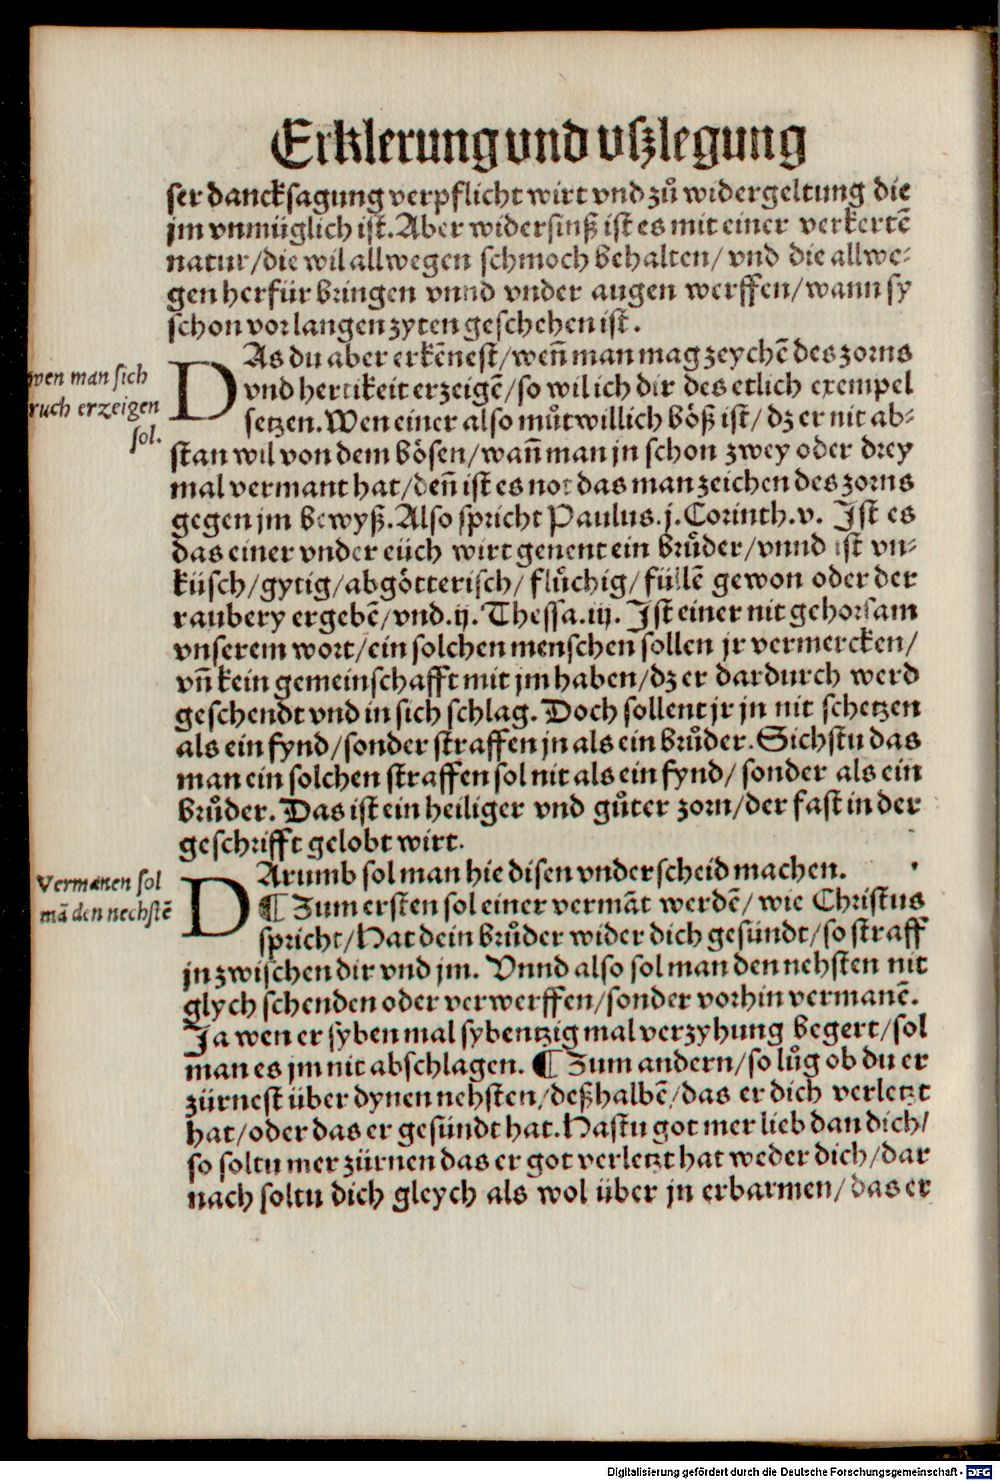 Erklerung vnd vszlegung
ser dancksagung verpflicht wirt vnd zuͦ widergeltung die
jm vnmüglich ist. Aber widersinß ist es mit einer verkertē
natur/die wil allwegen schmoch behalten/ vnd die allwe⸗
gen herfür bringen vnnd vnder augen werffen/wann sy
schon vor langen zyten geschehen ist.
wen man sich
ruch erzeigen
sol.
DAs du aber erkēnest/wen̄ man mag zeychē des zorns
vnd hertikeit erzeigē/so wil ich dir des etlich exempel
setzen. Wen einer also muͦtwillich böß ist/ dz er nit ab⸗
stan wil von dem bösen/wan̄ man jn schon zwey oder drey
mal vermant hat/den̄ ist es not das man zeichen des zorns
gegen jm bewyß. Also spricht Paulus.j.Corinth.v. Ist es
das einer vnder eüch wirt genent ein bruͦder/vnnd ist vn⸗
küsch/gytig/abgötterisch/ fluͦchig/ füllē gewon oder der
raubery ergebē/vnd.ij. Thessa.iij. Ist einer nit gehorsam
vnserem wort/ein solchen menschen sollen jr vermercken/
vn̄ kein gemeinschafft mit jm haben/dz er dardurch werd
geschendt vnd in sich schlag. Doch sollent jr jn nit schetzen
als ein fynd/sonder straffen jn als ein bruͦder. Sichstu das
man ein solchen straffen sol nit als ein fynd/ sonder als ein
bruͦder. Das ist ein heiliger vnd guͦter zorn/der fast in der
geschrifft gelobt wirt.
Vermanen sol
mā den nechstē
DArumb sol man hie disen vnderscheid machen.
¶ Zum ersten sol einer vermāt werdē/ wie Christus
spricht/Hat dein bruͦder wider dich gesündt/so straff
jn zwischen dir vnd jm. Vnnd also sol man den nehsten nit
glych schenden oder verwerffen/sonder vorhin vermanē.
Ja wen er syben mal sybentzig mal verzyhung begert/sol
man es jm nit abschlagen. ¶ Zum andern/so luͦg ob du er
zürnest über dynen nehsten/deßhalbē/das er dich verletzt
hat/oder das er gesündt hat. Hastu got mer lieb dan dich/
so soltu mer zürnen das er got verletzt hat weder dich/dar
nach soltu dich gleych als wol über jn erbarmen/das er
Digitalisierung gefördert durch die Deutsche Forschungsgemeinschaft - DFG